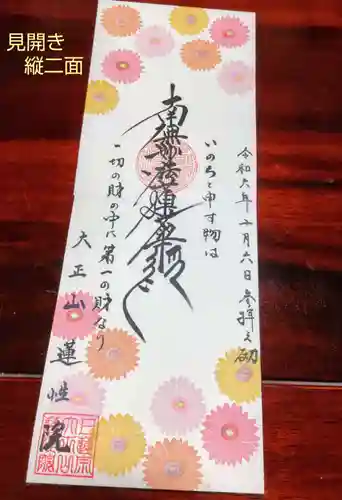 見開き
縦二面
令和六年十月六日参拝之砌
いのちと申す物は
南無妙法蓮華経
一切の財の中に第一の財なり
大正山蓮性院